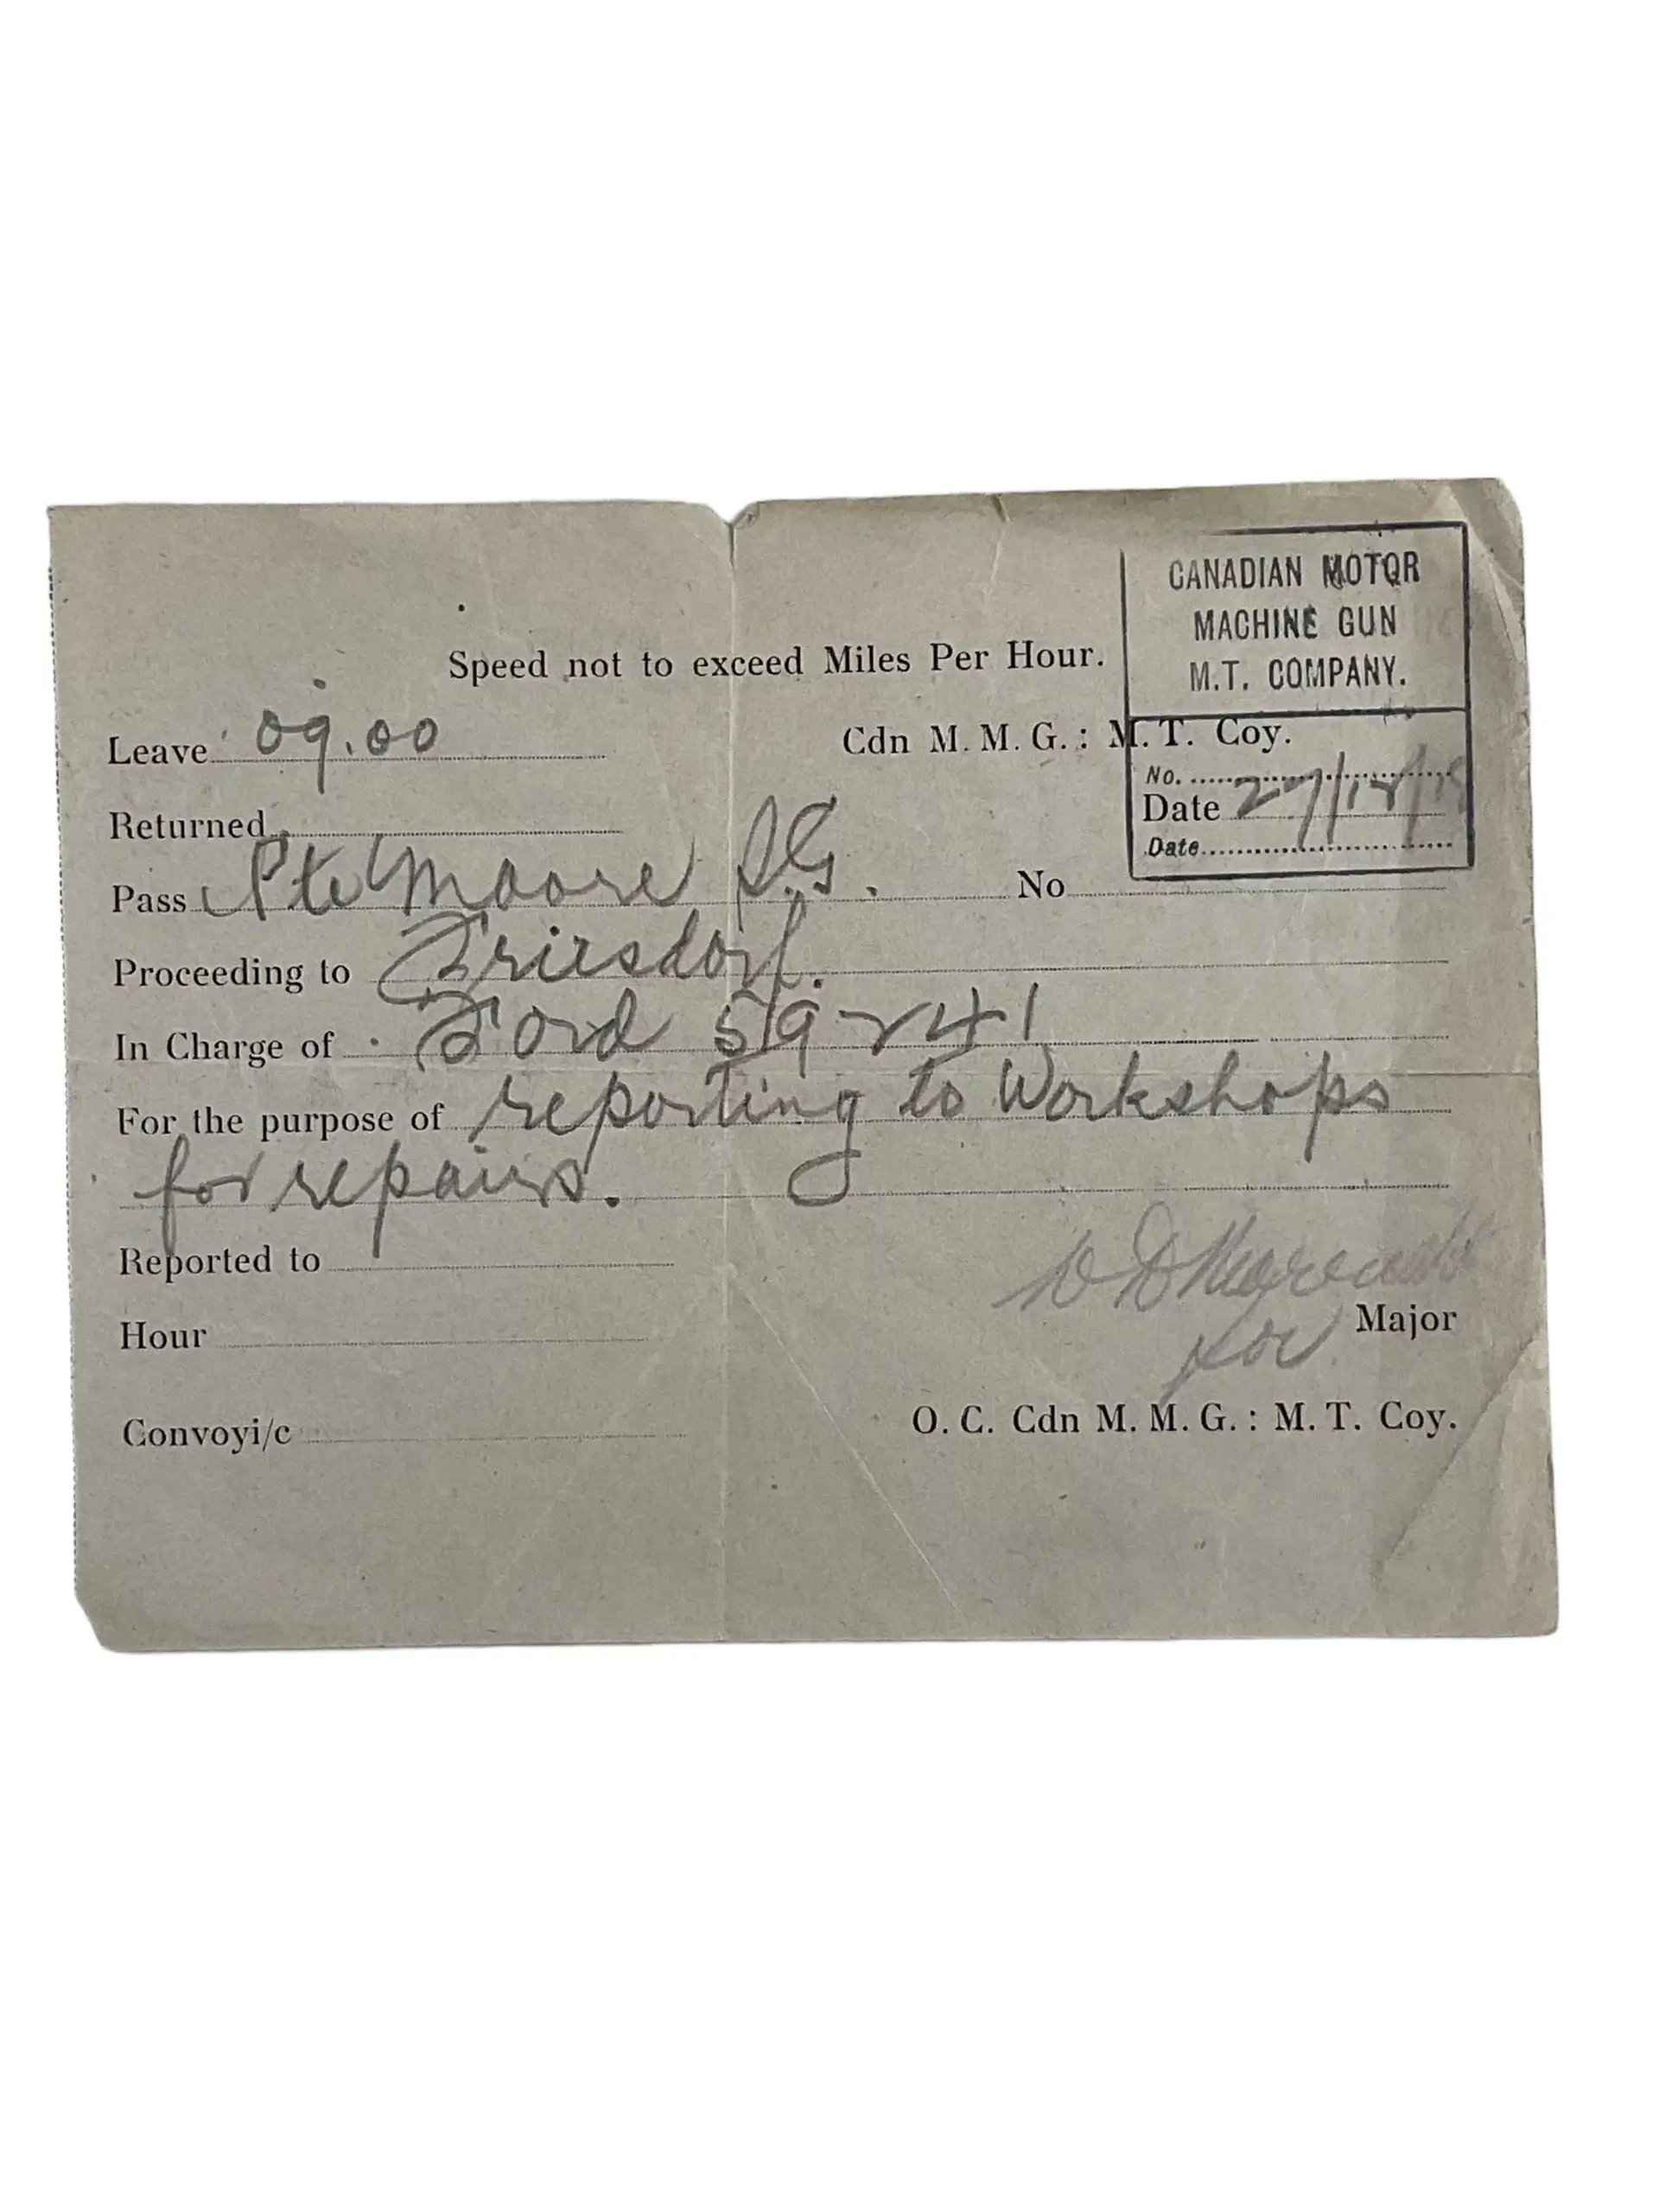 CANADIAN MOTOR
MACHINE GUN
M.T. COMPANY.
Speed not to exceed Miles Per Hour.
Leave 09.00
Cdn M. M. G. : M. T. Coy.
No.
Returned
Date 27/12/18
Date
Pass Pte Moore S.G. No
Proceeding to Friesdorf.
In Charge of Ford 59241
For the purpose of reporting to Workshops
for repairs.
Reported to
for Major
Hour
Convoyi/c
O. C. Cdn M. M. G. : M. T. Coy.